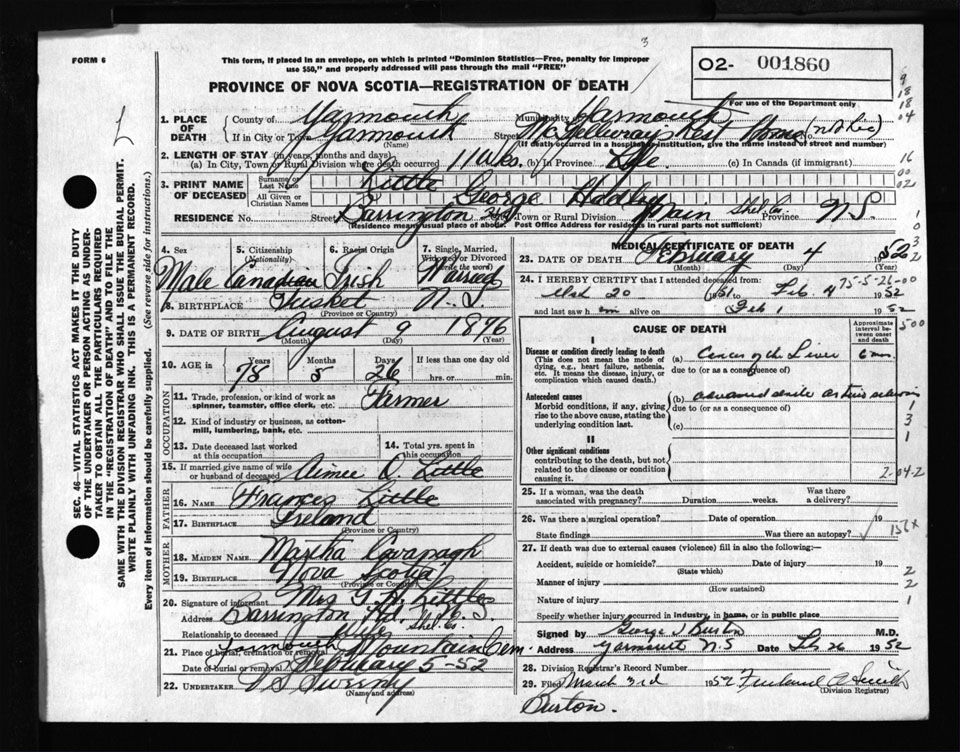 FORM 6
This form, if placed in an envelope, on which is printed "Dominion Statistics—Free, penalty for improper
use $50," and properly addressed will pass through the mail "FREE"
3
O2- 001860
PROVINCE OF NOVA SCOTIA—REGISTRATION OF DEATH
For use of the Department only
1. PLACE OF DEATH
County of Yarmouth Municipality Yarmouth
If in City or Town Yarmouth Street Rest Home
(Name) (If death occurred in a hospital or institution, give the name instead of street and number)
2. LENGTH OF STAY (in years, months and days)
(a) In City, Town or Rural Division where death occurred 11 wks. (b) in Province Life (c) In Canada (if immigrant)
3. PRINT NAME OF DECEASED
Surname or Last Name Little
All Given or Christian Names George
RESIDENCE No. Street Barrington City, Town or Rural Division Main Shel. Co. Province N.S.
(Residence means usual place of abode. Post Office Address for residents in rural parts not sufficient)
4. Sex Male
5. Citizenship (Nationality) Canadian
6. Racial Origin Irish
7. Single, Married, Widowed or Divorced (write the word) Married
8. BIRTHPLACE Tusket N.S.
(Province or Country)
9. DATE OF BIRTH August 9 1876
(Month) (Day) (Year)
10. AGE in Years Months Days If less than one day old
78 5 26 hrs. or min.
OCCUPATION
11. Trade, profession, or kind of work as spinner, teamster, office clerk, etc. Farmer
12. Kind of industry or business, as cotton-mill, lumbering, bank, etc.
13. Date deceased last worked at this occupation
14. Total yrs. spent in this occupation
15. If married give name of wife or husband of deceased Aimee O. Little
FATHER
16. NAME Frances Little
17. BIRTHPLACE Ireland
(Province or Country)
MOTHER
18. MAIDEN NAME Martha Cavanagh
19. BIRTHPLACE Nova Scotia
(Province or Country)
20. Signature of informant Mrs G. H. Little
Address Barrington Rd. Shel. Co. N.S.
Relationship to deceased
21. Place of burial, cremation or removal Mountain Cem.
Date of burial or removal February 5-52
22. UNDERTAKER V S Sweeny
(Name and address)
MEDICAL CERTIFICATE OF DEATH
23. DATE OF DEATH February 4 1952
(Month) (Day) (Year)
24. I HEREBY CERTIFY that I attended deceased from: 75-5-26-00
20 1951 to Feb. 4 1952
and last saw h im alive on Feb 1 1952
CAUSE OF DEATH
Approximate interval between onset and death
I
Disease or condition directly leading to death
(This does not mean the mode of dying, e.g., heart failure, asthenia, etc. It means the disease, injury, or complication which caused death.
(a) Cancer of the Liver 6 mos.
due to (or as a consequence of)
Antecedent causes
Morbid conditions, if any, giving rise to the above cause, stating the underlying condition last.
(b) advanced senile arterio sclerosis
due to (or as a consequence of)
(c)
II
Other significant conditions
contributing to the death, but not related to the disease or condition causing it.
2-04-2
25. If a woman, was the death associated with pregnancy? Duration weeks. Was there a delivery?
26. Was there a surgical operation? Date of operation 19
State findings Was there an autopsy? 156x
27. If death was due to external causes (violence) fill in also the following:—
Accident, suicide or homicide? Date of injury 19
(State which)
Manner of injury
(How sustained)
Nature of injury
Specify whether injury occurred in industry, in home, or in public place
Signed by George Burton M.D.
Address Yarmouth N S Date Feb 26 1952
28. Division Registrar's Record Number
29. Filed March 3rd 1952
(Division Registrar)
Burton.
SEC. 46—VITAL STATISTICS ACT MAKES IT THE DUTY
OF THE UNDERTAKER OR PERSON ACTING AS UNDER-
TAKER TO OBTAIN ALL THE PARTICULARS REQUIRED
IN THE "REGISTRATION OF DEATH" AND TO FILE THE
SAME WITH THE DIVISION REGISTRAR WHO SHALL ISSUE THE BURIAL PERMIT.
WRITE PLAINLY WITH UNFADING INK. THIS IS A PERMANENT RECORD.
Every item of information should be carefully supplied. (See reverse side for instructions.)